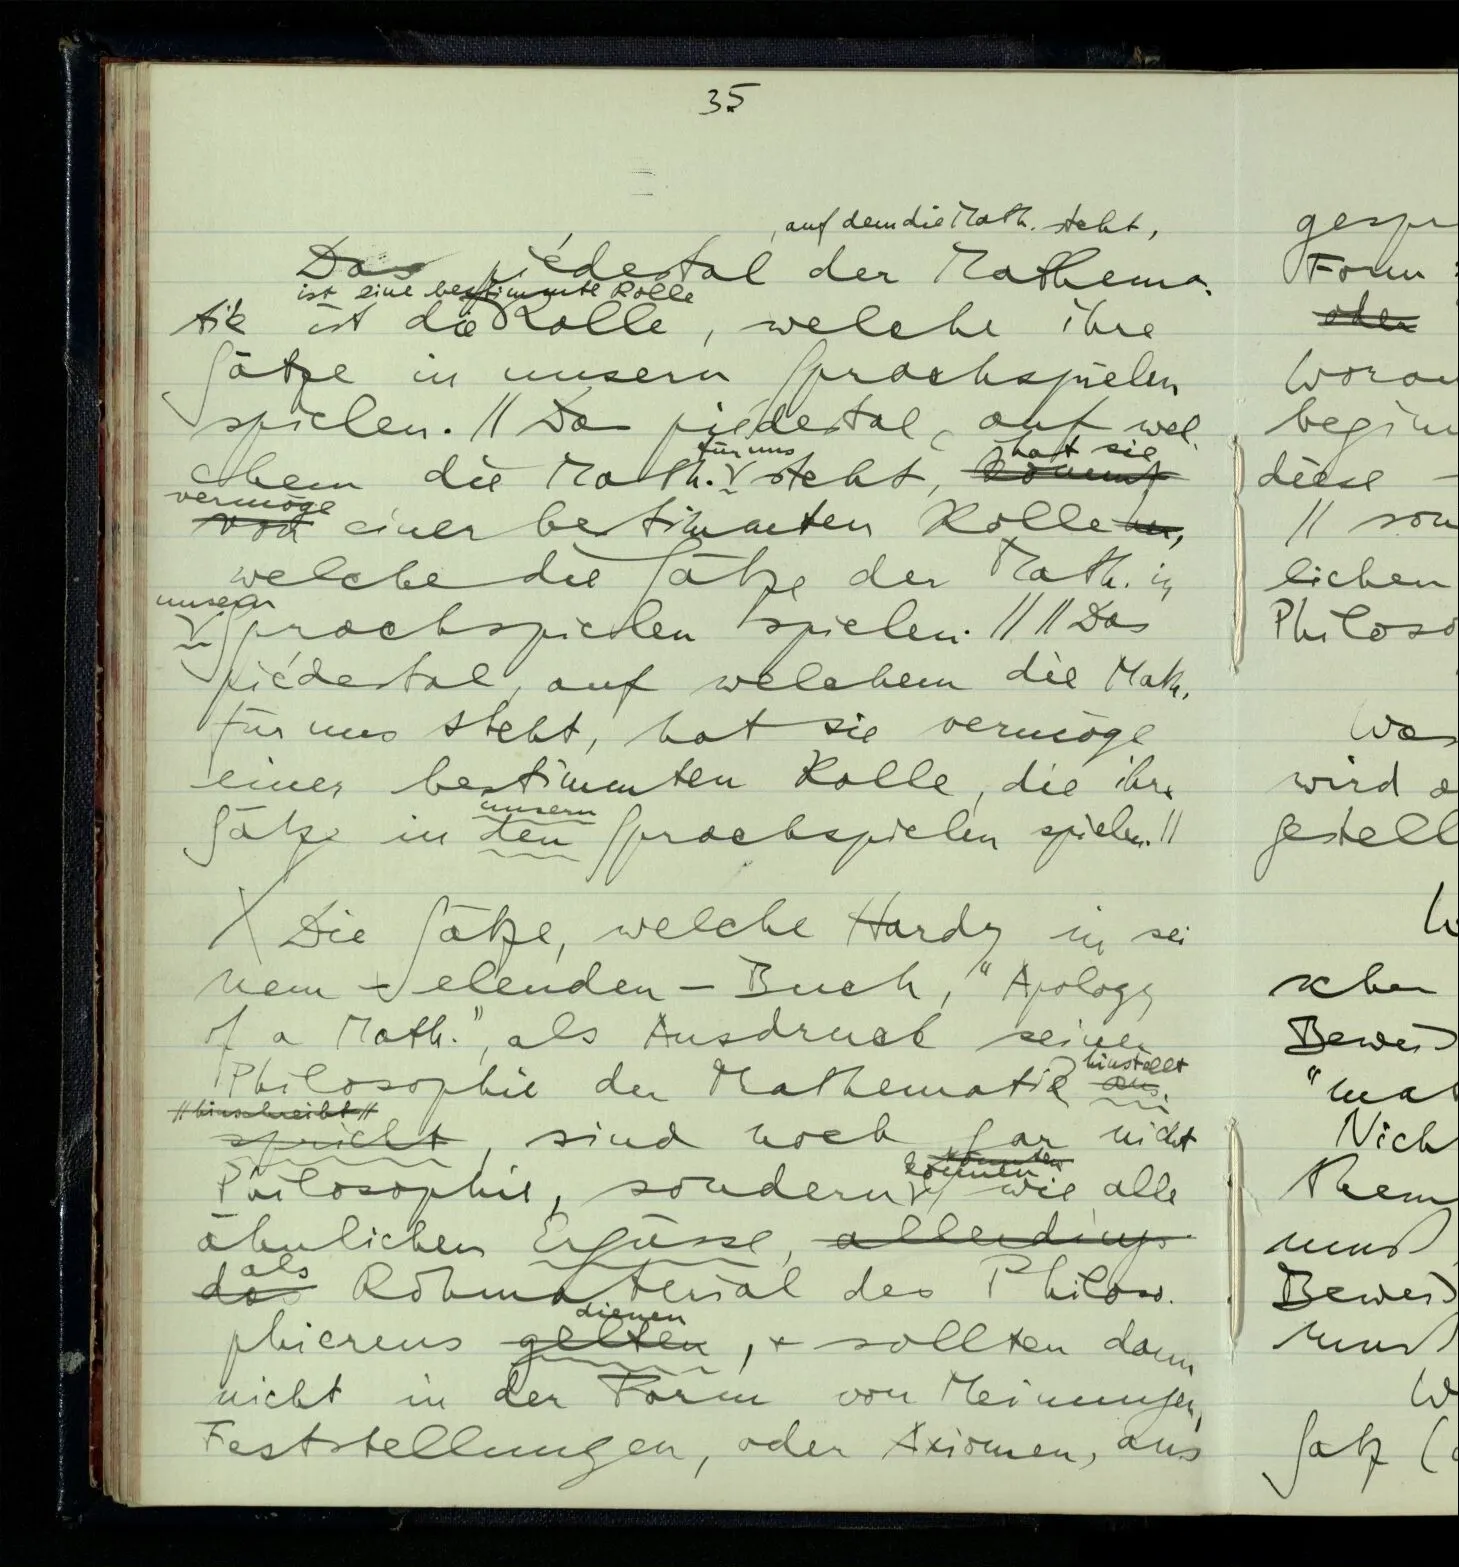 35
, auf dem die Math. steht,
Das piédestal der Mathema-
ist eine bestimmte Rolle
tik ist die Rolle, welche ihre
Sätze in unsern Sprachspielen
spielen. // Das piédestal, auf wel-
für uns hat sie
chem die Math. steht, kommt
vermöge
von einer bestimmten Rolle her,
welche die Sätze der Math. in
unsern
Sprachspielen spielen. // // Das
piédestal, auf welchem die Math.
für uns steht, hat sie vermöge
einer bestimmten Rolle, die ihre
unsern
Sätze in den Sprachspielen spielen. //
X Die Sätze, welche Hardy in sei
nem – elenden – Buch, "Apology
of a Math.", als Ausdruck seiner
hinstellt
Philosophie der Mathematik aus-
// hinschreibt //
spricht, sind noch gar nicht
könnten
können
Philosophie, sondern wie alle
ähnlichen Ergüsse, allerdings
als
das Rohmaterial des Philoso-
dienen
phierens gelten, + sollten dann
nicht in der Form von Meinungen,
Feststellungen, oder Axiomen, aus
gespr
Form
oder
Woran
begin
diese
// son
lichen
Philoso
Was
wird
gestell
W
schen
Beweis
"mat
Nich
them
muß
Beweis
muß
W
Satz (